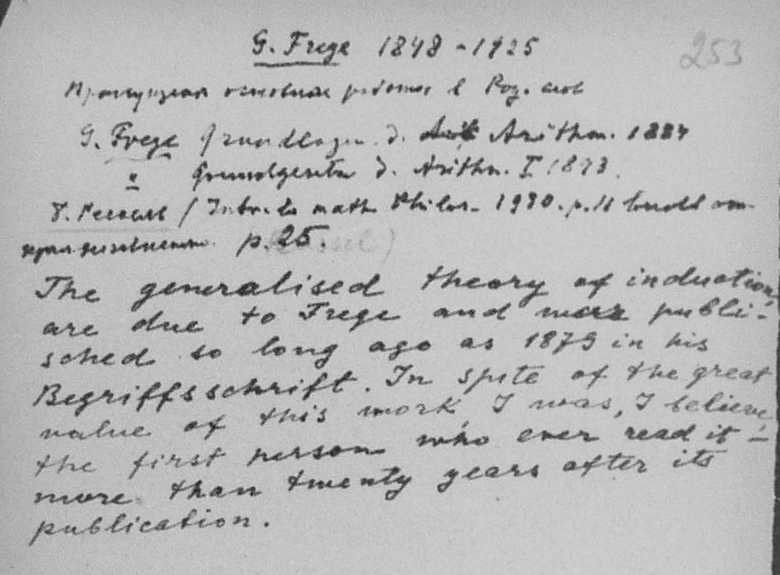 253
G. Frege 1848-1925
G. Frege Grundlagen d. Arithm. 1884
" Grundgesetze d. Arithm. I 1893.
Introd. to math. Philos. 1930. p. 11
p. 25.
The generalised theory of induction,
are due to Frege and were publi-
sched so long ago as 1879 in his
Begriffsschrift. In spite of the great
value of this work I was, I believe,
the first person who ever read it –
more than twenty years after its
publication.